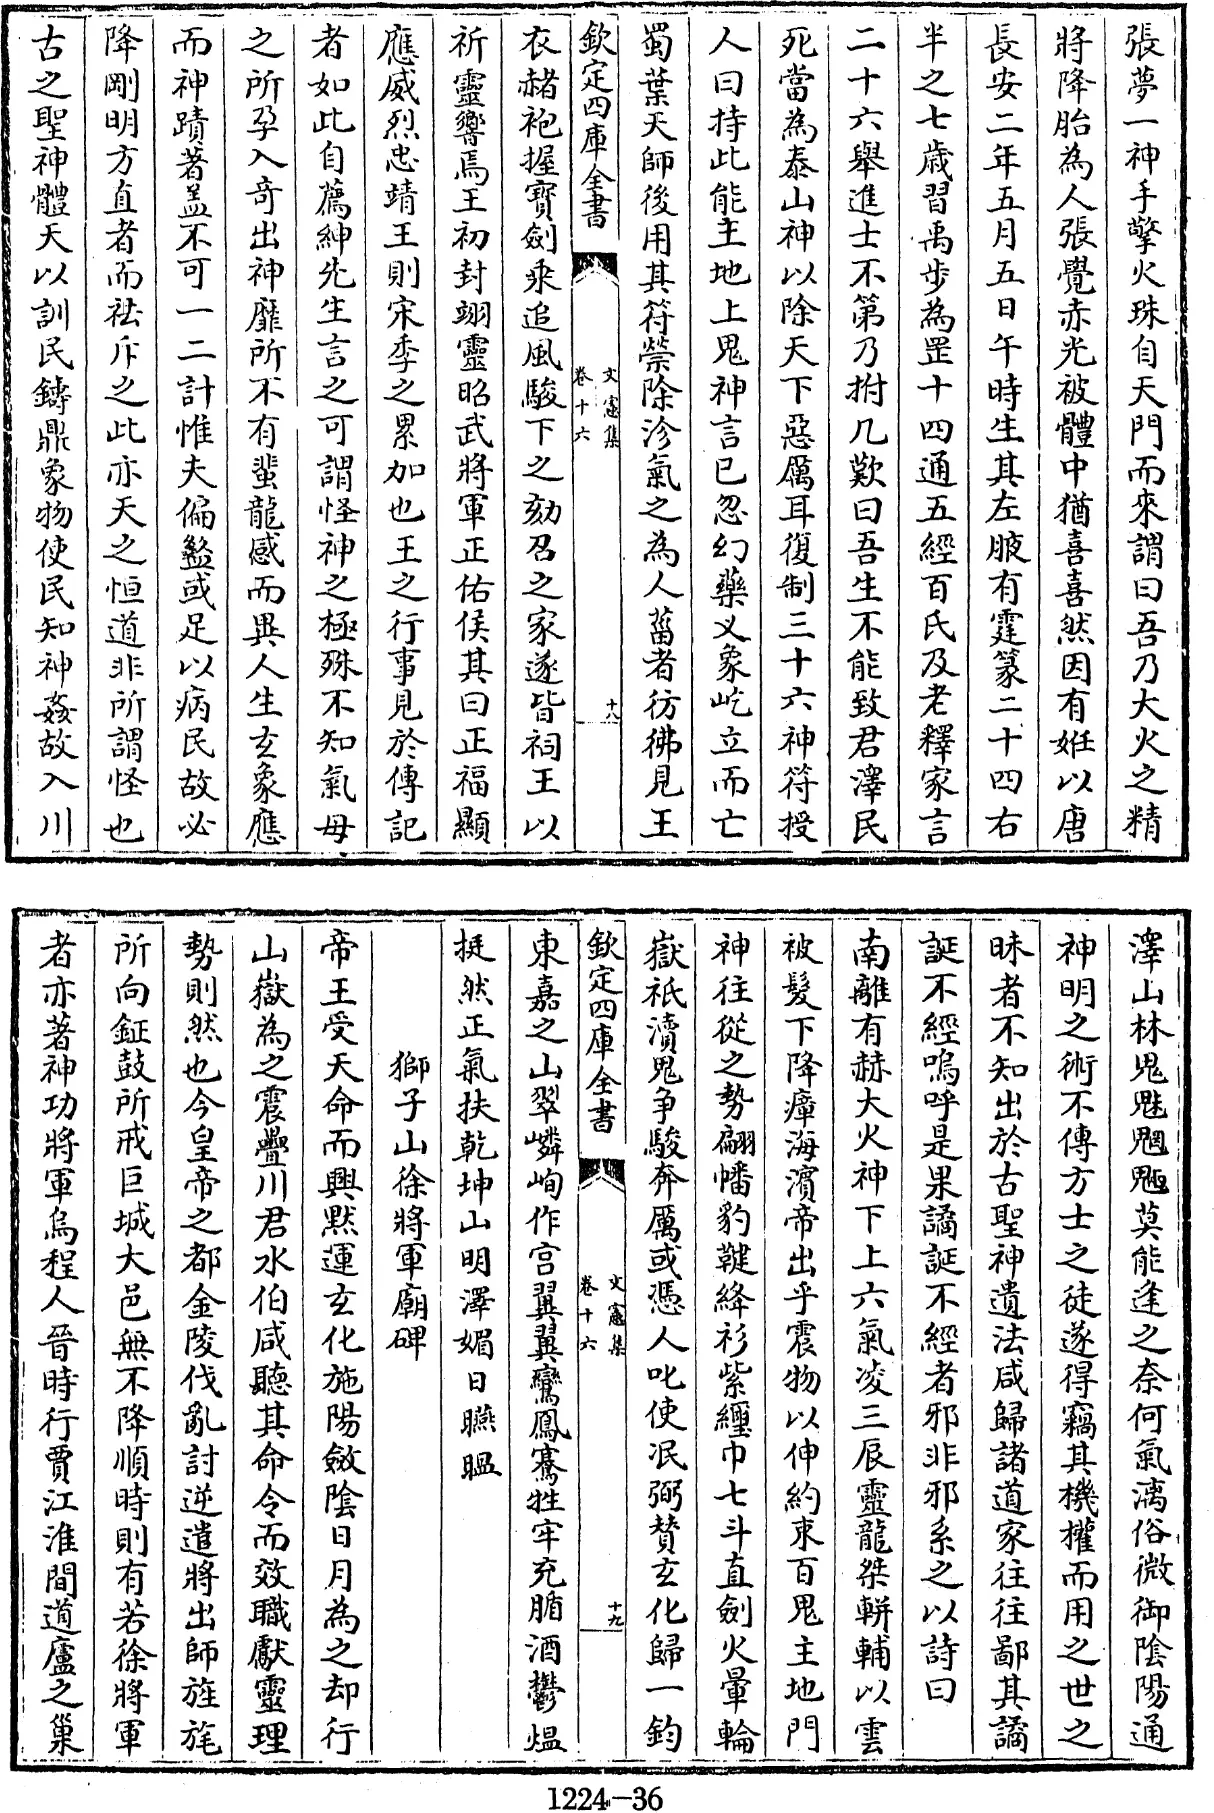 張夢一神手擎火珠自天門而來謂曰吾乃大火之精
將降胎為人張覺赤光被體中猶喜喜然因有娠以唐
長安二年五月五日午時生其左腋有霆篆二十四右
半之七歲習禹步為罡十四通五經百氏及老釋家言
二十六舉進士不第乃拊几歎曰吾生不能致君澤民
死當為泰山神以除天下惡厲耳復制三十六神符授
人曰持此能主地上鬼神言已忽幻藥义象屹立而亡
蜀葉天師後用其符禜除沴氣之為人菑者彷彿見王
欽定四庫全書
文憲集
卷十六
十八
衣赭袍握寳劍乘追風駿下之劾召之家遂皆祠王以
祈靈響焉王初封翊靈昭武將軍正佑侯其曰正福顯
應威烈忠靖王則宋季之累加也王之行事見於傳記
者如此自薦紳先生言之可謂怪神之極殊不知氣母
之所孕入奇出神靡所不有蜚龍感而異人生玄象應
而神蹟著盖不可一二計惟夫偏盭或足以病民故必
降剛明方直者而祛斥之此亦天之恒道非所謂怪也
古之聖神體天以訓民鑄鼎象物使民知神姦故入川
澤山林鬼魅魍魎莫能逢之奈何氣漓俗微御陰陽通
神明之術不傳方士之徒遂得竊其機權而用之世之
昧者不知出於古聖神遺法咸歸諸道家往往鄙其譎
誕不經嗚呼是果譎誕不經者邪非邪系之以詩曰
南離有赫大火神下上六氣凌三辰靈龍桀輧輔以雲
被髮下降瘴海濱帝出乎震物以伸約束百鬼主地門
神往從之勢翩幡豹鞬絳衫紫纏巾七斗直劍火暈輪
嶽祇瀆鬼争駿奔厲或憑人叱使泯弼賛玄化歸一鈞
欽定四庫全書
文憲集
卷十六
十九
東嘉之山翠嶙峋作宫翼翼鸞鳳騫牲牢充腯酒鬱熅
挺然正氣扶乾坤山明澤媚日曣㬈
獅子山徐將軍廟碑
帝王受天命而興默運玄化施陽斂陰日月為之却行
山嶽為之震疊川君水伯咸聽其命令而效職獻靈理
勢則然也今皇帝之都金陵伐亂討逆遣將出師旌旄
所向鉦鼓所戒巨城大邑無不降順時則有若徐將軍
者亦著神功將軍烏程人晉時行賈江淮間道廬之巢
1224-36